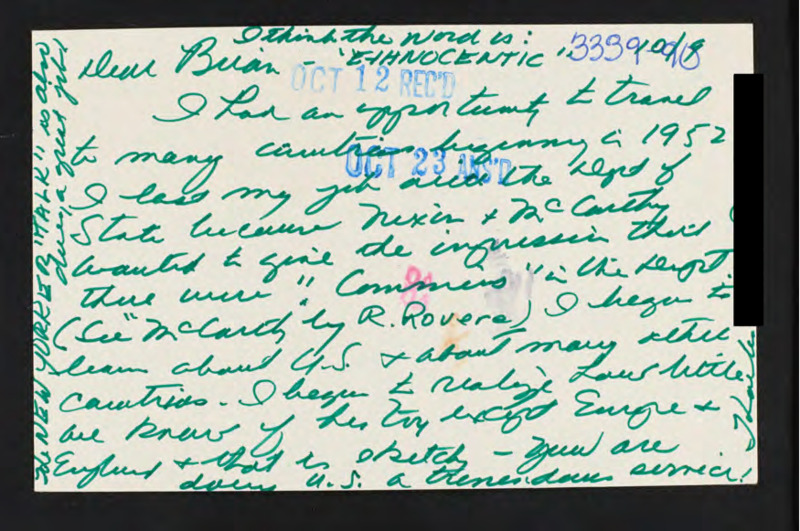 I think the word is:
"ETHNOCENTIC"
3339-98
10/8
Dear Brian -
OCT 12 REC'D
I had an opportunity to travel
to many countries beginning in 1952
OCT 23 ANS'D
I lost my job with the Dept of
State because Nixon + McCarthy
wanted to give the impression that
there were "Commies" in the Dept
(See "McCarthy by R. Rovere) I began to
learn about U.S. + about many other
countries - I began to realize how little
we know of history except Europe +
England + that is sketch - you are
doing U.S. a tremendous service!
The NEW YORKER "TALK" is also
doing a great job!